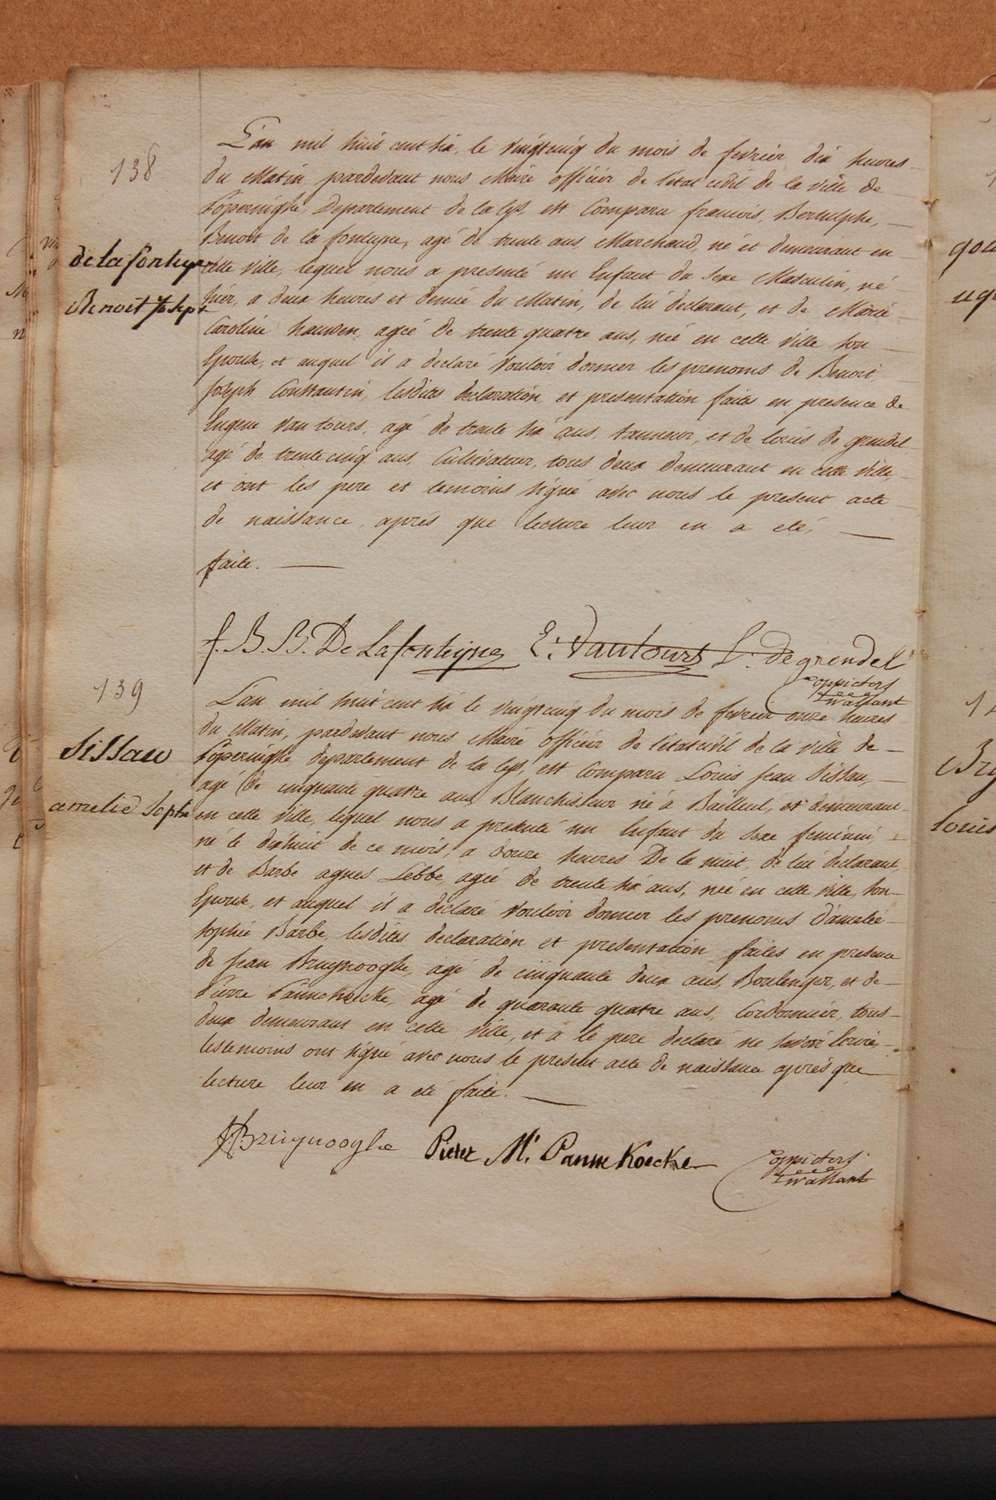 138
L'an mil huit cent six, le vingtcinq du mois de fevrier dix heures
du Matin, pardevant nous Maire officier de l'etat civil de la ville de
Poperinghe, Departement de la Lys, est Comparu francois, Bertulphe,
Benoit de la fonteyne, agé de trente ans Marchand, né et demeurant en
cette ville, lequel nous a presenté un Enfant du sexe Masculin, né
hier, a deux heures et demie du Matin, de lui declarant, et de Marie
Caroline hauwen, agée de trente quatre ans, née en cette ville son
Epouse, et auquel il a declaré vouloir donner les prenoms de Benoit
Joseph Constantin, lesdites declaration et presentation faites en presence de
Eugene Van tours, agé de trente six ans, tanneur, et de louis de grendel
agé de trente cinq ans, Cultivateur, tous deux demeurant en cette ville,
et ont les pere et temoins signé avec nous le present acte
de naissance, aprés que lecture leur en a eté,
faite.
de la fonteyne
Benoit Joseph
f. B. B. De Lafonteyne E. Vantours L. degrendel
139
L'an mil huit cent six le vingtcinq du mois de fevrier onze heures
du Matin, pardevant nous Maire officier de l'etat civil de la ville de
Poperinghe departement de la Lys, est Comparu Louis Jean Sissau,
agé de cinquante quatre ans Blanchisseur né à Bailleul, et demeurant
en cette ville, lequel nous a presenté un Enfant du sexe feminin,
né le dixhuit de ce mois, a douze heures De la nuit, de lui declarant,
et de Barbe agnes Lebbe, agée de trente six ans, née en cette ville, son
Epouse, et auquel il a declaré vouloir donner les prenoms d'amelie
sophie Barbe, lesdites declaration et presentation faites en presence
de Jean Bruynooghe, agé de cinquante deux ans, Boulenger, et de
Pierre Pannekoecke, agé de quarante quatre ans, Cordonnier, tous
deux demeurans en cette ville, et à le pere declaré ne savoir ecrire,
les temoins ont signé avec nous le present acte de naissance aprés que
lecture leur en a eté faite.
Sissau
amelie Sophie
J Bruynooghe Pieter M. Pannekoecke